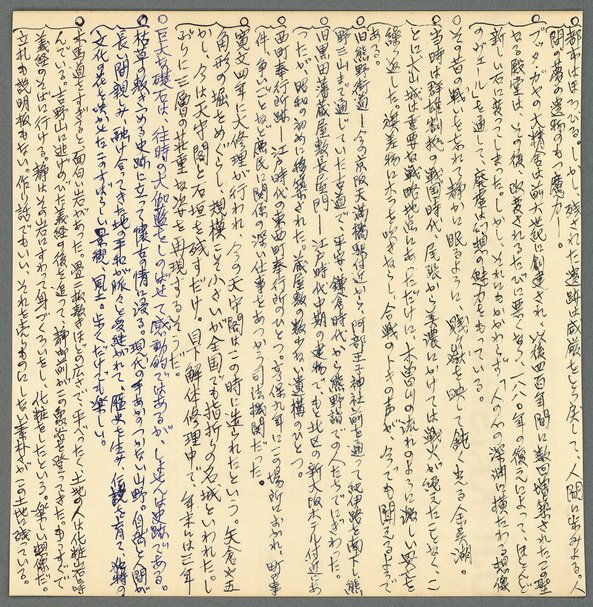 ○都市はほろびる。しかし、残された遺跡は威厳をとり戻して、人間に歩みよる。人
間の廃の遺物のもつ魔力ー。
○ブッダ・ガヤの大精舎は前一世紀に創造され、以後四百年間に数回増築されたる聖
なる殿堂は、その後、改築されるたびに悪くなり、一八八〇年の復元によって、ほとんど
新しい石に変ってしまった。しかし、それにもかかわらず、人の心の深淵に横たわる想像
のヴェールを通して、廃墟は幻想の魅力をもっている。
○その昔の戦いを忘れて静かに眠るように、賤ヶ嶽を映して鈍く光る余呉湖。
○当時は群雄割拠の戦国時代、尾張から美濃にかけては戦火が絶えたことなく、こ
とに犬山城は重要な戦略地点にあっただけに、木曽川の流れのように激しい興亡を
繰り返した。候差物にホラを吹きならし、合戦のときの声が、今でも聞えるようで
ある。
○旧熊野街道ー今の京阪天満橋駅付近から、阿部王子神社前を通って紀伊路を南下し熊
野三山まで通じていた古道で、平安、鎌倉時代から熊野詣での人たちでにぎわった。
○旧黒田藩蔵屋敷長屋門ー江戸時代中期の建物でもと北区の新大阪ホテル付近にあ
ったが、昭和の初めに移築された。蔵屋敷の数少ない遺構のひとつ。
○西町奉行所跡ー江戸時代の東西町奉行所のひとつ。享保九年にこの場所におかれ、町の事
件、争いごとなど庶民に関係の深い仕事をあつかう司法機関だった。
○寛文四年に大修理が行われ、今の天守閣はこの時に造られたという。矢倉や五
角形の堀をめぐらし、規模こそ小さいが全国でも指折りの名城といわれた。し
かし、今は天守閣と石垣を残すだけ。目下解体修理中で、年末には三年
ぶりに三層の荘重な姿を再現するそうだ。
○巨大な礎石は、往時の大伽藍をしのばせて感動的ではあるが、しょせんは史跡である。
○枯草の敷きつめる史跡に立って懐古の情に浸る。現代の手あかのつかない山野。自然と人間が
長い間親しみ、融け合ってきた地平和が脈々と受継がれて、歴史を生み伝説を育て、独特の
文化の花を咲かせた。すばらしい景観、風土。歩くだけでも楽しい。
○木馬道をすぎると面白い岩があった。畳二枚敷きほどの広さで、平べったく土地の人は化粧岩と呼
んでいる。吉野山に逃げのびた義経の後を追って、静御前がこの急坂を登ってきた。もうすぐで
義経のそばに行ける。静はその岩にすわって身づくろいをし、化粧をしたという。楽しい想像だ。
立札も説明板もない。作り話でもいい、それを決りものにした素朴がこの土地に残ている。